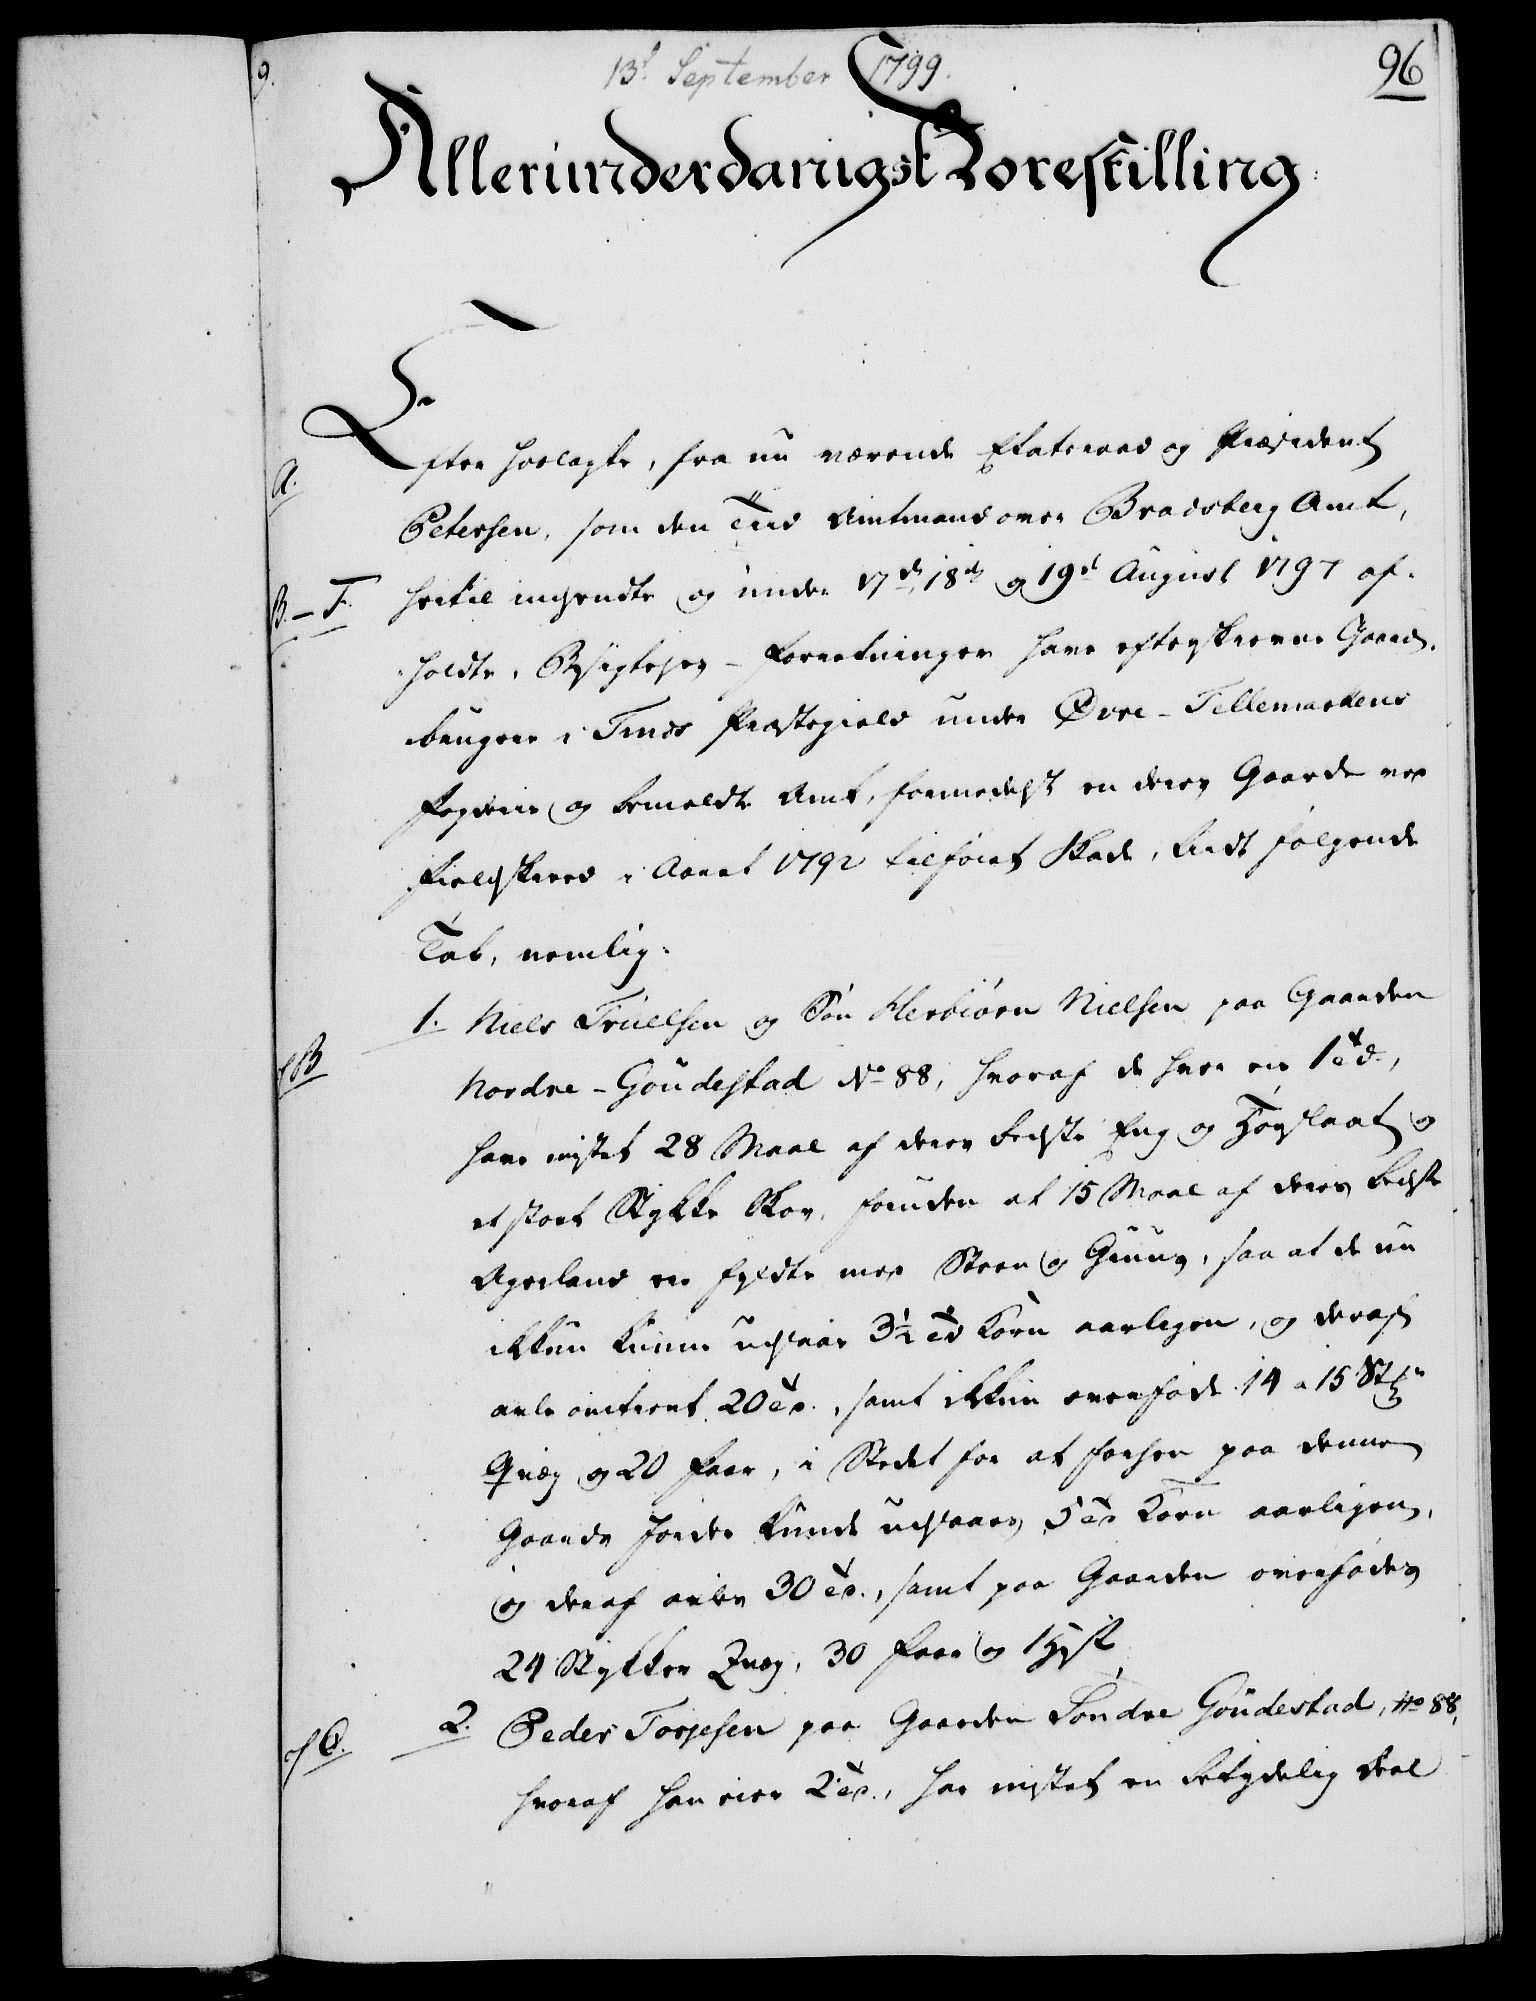 9.
13d September 1799.
96
Allerunderdanigst Forestilling
A.
Efter hoslagte, fra nu værende Etatsraad og Præsident
Petersen, som den Tiid Amtmand over Bradsberg Amt,
B. – F.
hertil indsendte og under 17de, 18de og 19de August 1797 af-
holdte, Besigtelses-Forretninger have efterskrevne Gaard-
brugere i Tinds Præstegield under Øvre-Tellemarkens
Fogderie og bemeldte Amt, formedelst en deres Gaarde ved
Fieldskreed i Aaret 1792 tilføiet Skade, liidt følgende
Tab, nemlig:
1. Niels Truelsen og Søn Herbiørn Nielsen paa Gaarden
cf B
Nordre-Goudestad No 88, hvoraf de hver eie 1 Td.,
have mistet 28 Maal af deres bedste Eng og Høeslaat og
et stort Stykke Skov, foruden at 15 Maal af deres bedste
Agerland er fyldte med Steen og Gruus, saa at de nu
ikkun kunne udsaae 3½ Td Korn aarligen, og deraf
avle omtrent 20 Td., samt ikkun overføde 14 a 15 Stkr
Qvæg og 20 Faar, i Stedet for at forhen paa denne
Gaards Jorder kunde udsaaes 5 Td Korn aarligen,
og deraf avles 30 Td., samt paa Gaarden overfødes
24 Stykker Qvæg, 30 Faar og 1 Hest,
cf C.
2. Peder Torjesen paa Gaarden Søndre Goudestad, No 88,
hvoraf han eier 2 Td., har mistet en betydelig Deel